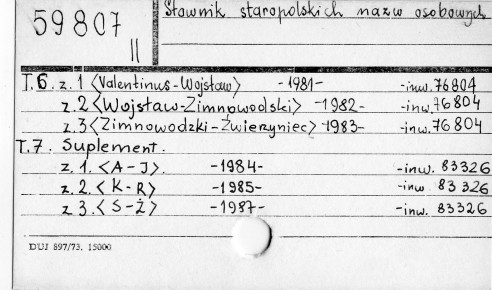 59807
II
Słownik staropolskich nazw osobowych
T.6. z.1 <Valentinus-Wojsław> -1981- -inw. 76804
z.2 <Wojsław-Zimnowodski> -1982- -inw. 76804
z.3 <Zimnowodzki-Źwierzyniec> -1983- -inw. 76804
T.7. Suplement.
z. 1. <A-J>. -1984- -inw. 83326
z. 2. <K-R> -1985- -inw. 83326
z. 3. <S-Ż> -1987- -inw. 83326
DUJ 897/73. 15000